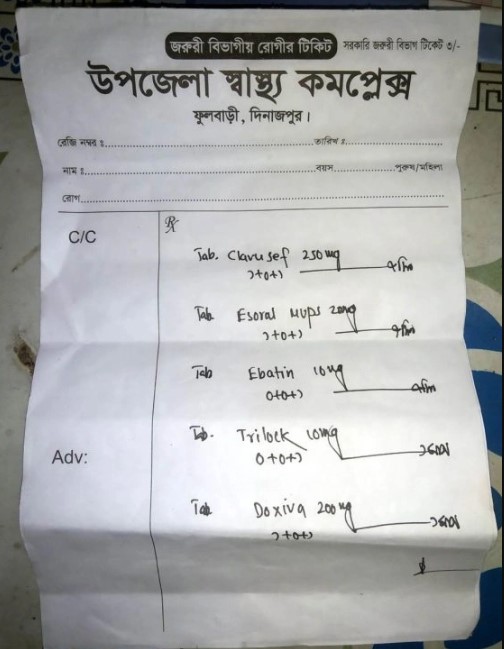 জরুরী বিভাগীয় রোগীর টিকিট সরকারি জরুরী বিভাগ টিকেট ৩/-
উপজেলা স্বাস্থ্য কমপ্লেক্স
ফুলবাড়ী, দিনাজপুর।
রেজি নম্বর ঃ তারিখ ঃ
নাম ঃ বয়স পুরুষ/মহিলা
রোগ
C/C
Rx
Tab. Clavusef 250 mg
১+০+১
Tab. Esoral MUPS 20mg
১+০+১
Tab Ebatin 10mg
০+০+১
Tab. Trilock 10mg
০+০+১
Adv:
Tab Doxiva 200 mg
১+০+১